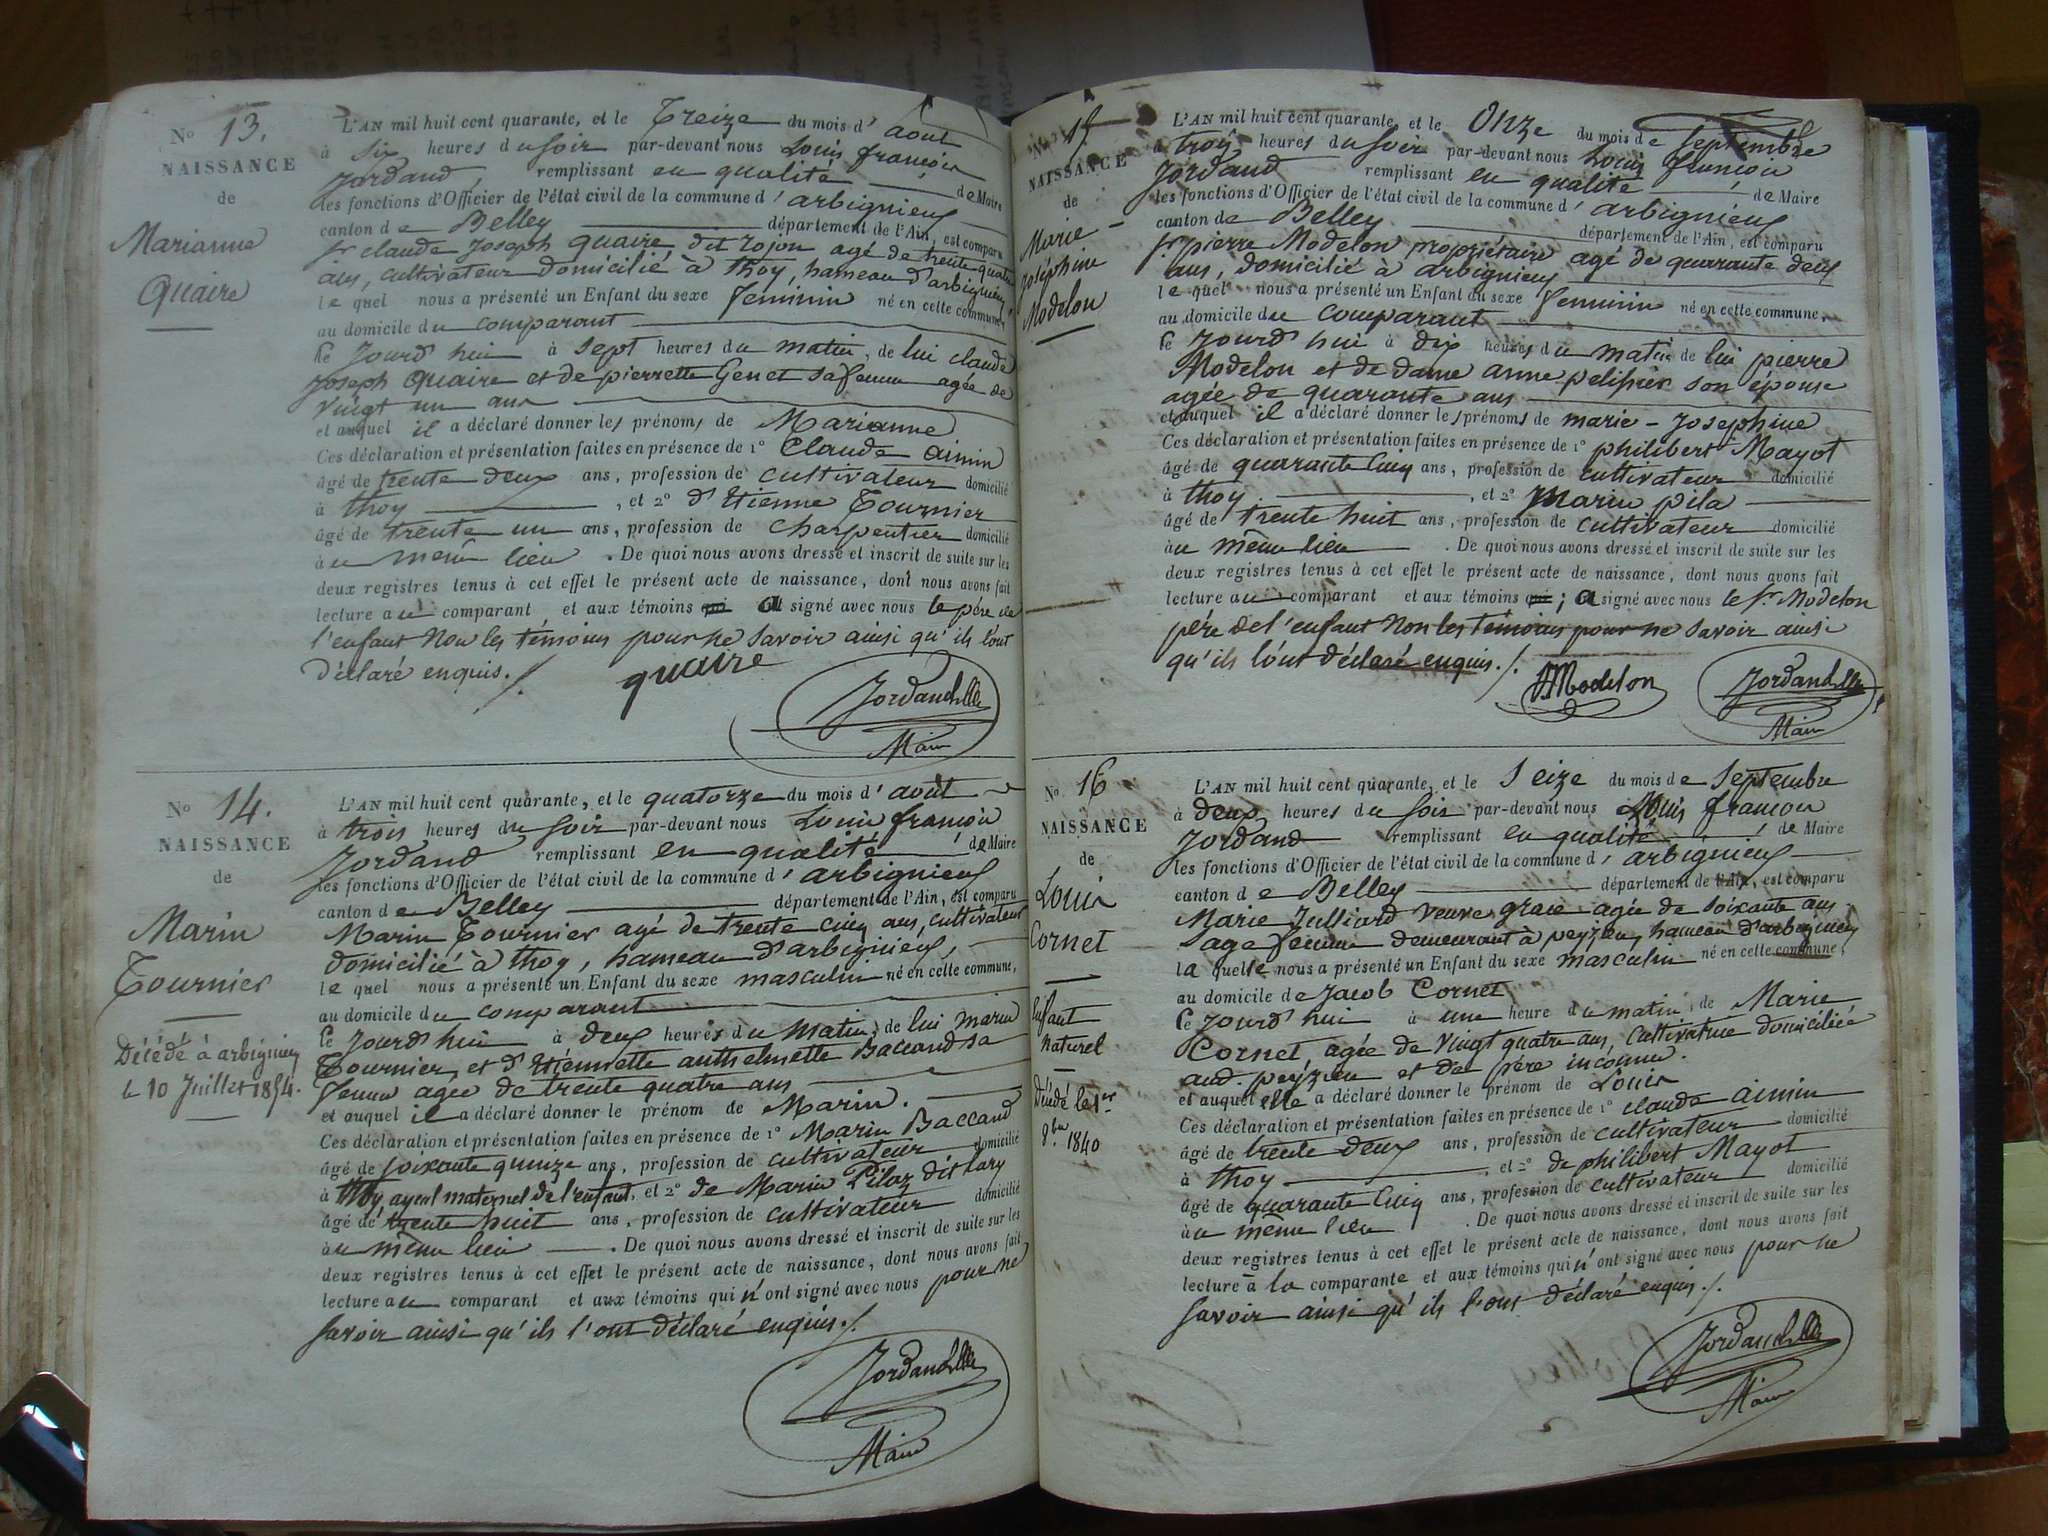 N° 13.
NAISSANCE
de
Marianne
Quaire
L'AN mil huit cent quarante, et le Treize du mois d' aout
à six heures du soir par-devant nous Louis françois
Jordand remplissant en qualité de Maire
les fonctions d'Officier de l'état civil de la commune d' arbignieu
canton de Belley département de l'Ain, est comparu
Sr claude Joseph quaire dit Lojon agé de trente quatre
ans, cultivateur domicilié à thoy, hameau d'arbignieu,
le quel nous a présenté un Enfant du sexe feminin né en cette commune,
au domicile du comparant
ce Jourd'hui à sept heures du matin, de lui claude
Joseph Quaire et de pierrette Genet sa femme agée de
vingt un ans
et auquel il a déclaré donner les prénoms de Marianne
Ces déclaration et présentation faites en présence de 1° Claude aimin
âgé de trente deux ans, profession de cultivateur domicilié
à thoy, et 2° d'Etienne Tournier
âgé de trente un ans, profession de charpentier domicilié
au même lieu. De quoi nous avons dressé et inscrit de suite sur les
deux registres tenus à cet effet le présent acte de naissance, dont nous avons fait
lecture au comparant et aux témoins qui a signé avec nous le père de
l'enfant Non les témoins pour ne savoir ainsi qu'ils l'ont
déclaré enquis./.
quaire
Jordand
Maire
N° 14.
NAISSANCE
de
Marin
Tournier
Décédé à arbignieu
le 10 Juillet 1854.
L'AN mil huit cent quarante, et le quatorze du mois d' août
à trois heures du soir par-devant nous Louis françois
Jordand remplissant en qualité de Maire
les fonctions d'Officier de l'état civil de la commune d' arbignieu
canton de Belley département de l'Ain, est comparu
Marin Tournier agé de trente cinq ans, cultivateur
domicilié à thoy, hameau d'arbignieu,
le quel nous a présenté un Enfant du sexe masculin né en cette commune,
au domicile du comparant
ce Jourd'hui à deux heures du matin, de lui marin
Tournier, et d'Etiennette anthelmette Baccand sa
femme agée de trente quatre ans
et auquel il a déclaré donner le prénom de Marin.
Ces déclaration et présentation faites en présence de 1° Marin Baccand
âgé de soixante quinze ans, profession de cultivateur domicilié
à thoy ayeul maternel de l'enfant, et 2° de Marin Pilaz dit lary
âgé de trente huit ans, profession de cultivateur domicilié
au même lieu. De quoi nous avons dressé et inscrit de suite sur les
deux registres tenus à cet effet le présent acte de naissance, dont nous avons fait
lecture au comparant et aux témoins qui n'ont signé avec nous pour ne
savoir ainsi qu'ils l'ont déclaré enquis./.
Jordand
Maire
N° 15
NAISSANCE
de
Marie-
Joséphine
Modelon
L'AN mil huit cent quarante, et le Onze du mois de Septembre
à trois heures du soir par-devant nous Louis françois
Jordand remplissant en qualité de Maire
les fonctions d'Officier de l'état civil de la commune d' arbignieu
canton de Belley département de l'Ain, est comparu
Sr pierre Modelon propriétaire agé de quarante deux
ans, domicilié à arbignieu
le quel nous a présenté un Enfant du sexe feminin né en cette commune,
au domicile du comparant
ce Jourd'hui à dix heures du matin de lui pierre
Modelon et de dame anne pelissier son épouse
agée de quarante ans
et auquel il a déclaré donner les prénoms de marie-Josephine
Ces déclaration et présentation faites en présence de 1° philibert Mayot
âgé de quarante cinq ans, profession de cultivateur domicilié
à thoy, et 2° Marin pila
âgé de trente huit ans, profession de cultivateur domicilié
au même lieu. De quoi nous avons dressé et inscrit de suite sur les
deux registres tenus à cet effet le présent acte de naissance, dont nous avons fait
lecture au comparant et aux témoins qui; a signé avec nous le Sr Modelon
père de l'enfant Non les témoins pour ne savoir ainsi
qu'ils l'ont déclaré enquis./.
Modelon
Jordand
Maire
N° 16
NAISSANCE
de
Louis
Cornet
Enfant
naturel
Décédé le 1er
9bre 1840
L'AN mil huit cent quarante, et le Seize du mois de Septembre
à deux heures du soir par-devant nous Louis françois
Jordand remplissant en qualité de Maire
les fonctions d'Officier de l'état civil de la commune d' arbignieu
canton de Belley département de l'Ain, est comparu
Marie Julliard veuve grace agée de soixante ans
sage femme demeurant à peyzieu, hameau d'arbignieu
la quelle nous a présenté un Enfant du sexe masculin né en cette commune,
au domicile de Jacob Cornet
ce Jourd'hui à une heure du matin, de Marie
Cornet, agée de vingt quatre ans, cultivatrice domiciliée
aud. peyzieu et de père inconnu.
et auquel elle a déclaré donner le prénom de Louis
Ces déclaration et présentation faites en présence de 1° claude aimin
âgé de trente deux ans, profession de cultivateur domicilié
à thoy, et 2° de philibert Mayot
âgé de quarante cinq ans, profession de cultivateur domicilié
au même lieu. De quoi nous avons dressé et inscrit de suite sur les
deux registres tenus à cet effet le présent acte de naissance, dont nous avons fait
lecture à la comparante et aux témoins qui n'ont signé avec nous pour ne
savoir ainsi qu'ils l'ont déclaré enquis./.
Jordand
Maire